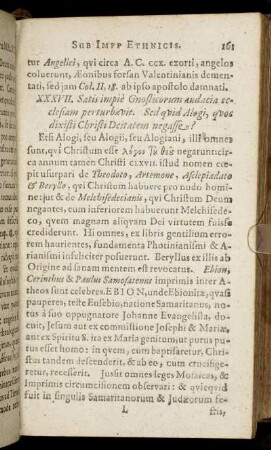 SUB IMPP ETHNICIS. 161
tur Angelici, qui circa A. C. ccx. exorti, angelos
coluerunt, Æonibus forsan Valentinianis demen-
tati, sed jam Col. II, 18. ab ipso apostolo damnati.
XXXVII. Satis impiè Gnosticorum audacia ec-
clesiam perturbavit. Sed quid Alogi, quos
dixisti Christi Deitatem negasse?
Etsi Alogi, seu Alogii, seu Alogiani, illi omnes
sunt, qui Christum esse Λόγον Τȣ͂ θεȣ͂ negarunt: cir-
ca annum tamen Christi CLXVII. istud nomen cœ-
pit usurpari de Theodoto, Artemone, Asclepiadato
& Beryllo, qui Christum habuere pro nudo homi-
ne: jut & de Melchisedecianis, qui Christum Deum
negantes, cum inferiorem habuerunt Melchisede-
co, quem magnam aliqvam Dei virtutem fuisse
crediderunt. Hi omnes, ex libris gentilium erro-
rem haurientes, fundamenta Photinianismi & A-
rianismi infeliciter posuerunt. Beryllus ex illis ab
Origine ad sanam mentem est revocatus. Ebion,
Cerinthus & Paulus Samosatenus imprimis inter A-
logos sunt celebres. EBION, unde Ebionitæ, qvasi
pauperes, teste Eusebio, natione Samaritanus, no-
tus à suo oppugnatore Johanne Evangelista, do-
cuit, Jesum aut ex commistione Josephi & Mariæ,
aut ex Spiritu S. ita ex Maria genitum, ut purus pu-
tus esset homo: in qvem, cum baptisaretur, Chri-
stus tandem descenderit, & ab eo, cum crucifige-
retur, recesserit. Jussit omnes leges Mosaicas, &
Imprimis circumcisionem observari: & qvicqvid
fuit in singulis Samaritanorum & Judæorum fe-
L stis,